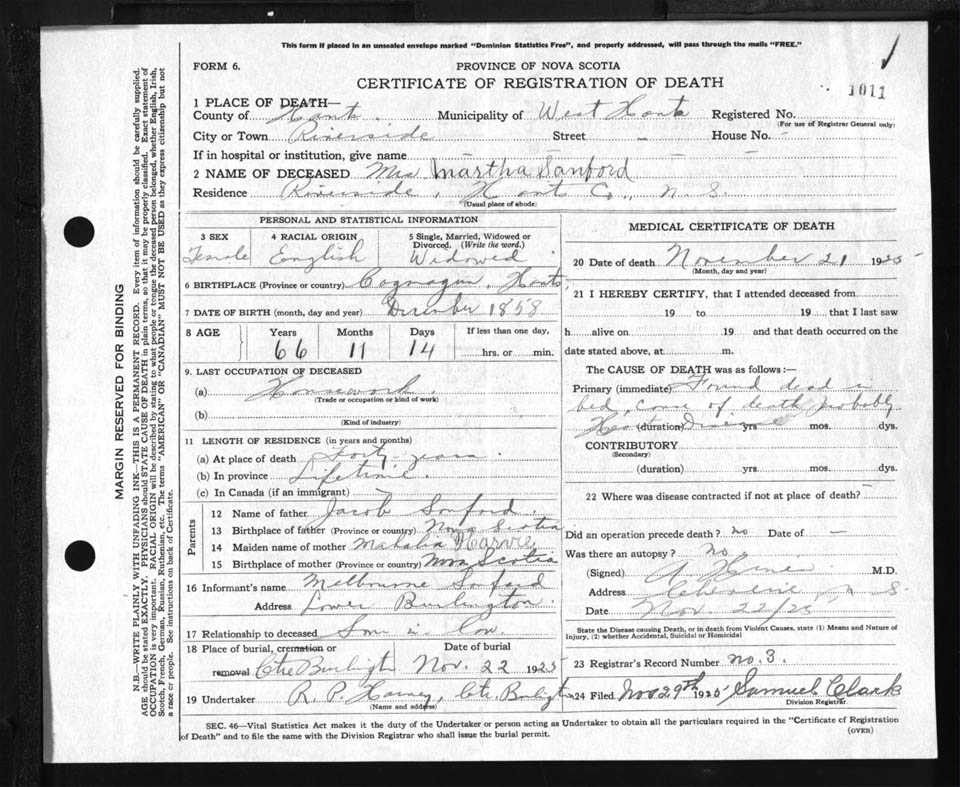 This form if placed in an unsealed envelope marked "Dominion Statistics Free", and properly addressed, will pass through the mails "FREE."
FORM 6.
PROVINCE OF NOVA SCOTIA
CERTIFICATE OF REGISTRATION OF DEATH
1011
1 PLACE OF DEATH—
County of Hants. Municipality of West Hants Registered No.
(For use of Registrar General only)
City or Town Riverside Street – House No. –
If in hospital or institution, give name
2 NAME OF DECEASED Mrs Martha Sanford
Residence Riverside, Hants Co., N. S.
(Usual place of abode)
PERSONAL AND STATISTICAL INFORMATION
3 SEX 4 RACIAL ORIGIN 5 Single, Married, Widowed or Divorced. (Write the word.)
Female English Widowed
6 BIRTHPLACE (Province or country) Cogmagun, Hants
7 DATE OF BIRTH (month, day and year) December 1858
8 AGE Years Months Days If less than one day,
66 11 14 hrs. or min.
9. LAST OCCUPATION OF DECEASED
(a) Housework
(Trade or occupation or kind of work)
(b)
(Kind of industry)
11 LENGTH OF RESIDENCE (in years and months)
(a) At place of death Forty-years
(b) In province Lifetime
(c) In Canada (if an immigrant) –
Parents
12 Name of father Jacob Sanford
13 Birthplace of father (Province or country) Nova Scotia
14 Maiden name of mother Mahalia Harvie
15 Birthplace of mother (Province or country) Nova Scotia
16 Informant's name Melbourne Sanford
Address Lower Burlington.
17 Relationship to deceased Son in law.
18 Place of burial, cremation or removal Ctre Burligtn Date of burial Nov. 22 1925
19 Undertaker R. P. Harvey, Ctre Burligtn
(Name and address)
MEDICAL CERTIFICATE OF DEATH
20 Date of death November 21 1925
(Month, day and year)
21 I HEREBY CERTIFY, that I attended deceased from
19 to 19 that I last saw
h alive on 19 and that death occurred on the
date stated above, at m.
The CAUSE OF DEATH was as follows:—
Primary (immediate) Found dead in
bed, cause of death probably
Heart Disease (duration) yrs mos. dys.
CONTRIBUTORY
(Secondary)
(duration) yrs. mos. dys.
22 Where was disease contracted if not at place of death?
Did an operation precede death? no Date of –
Was there an autopsy? no.
(Signed) M.D.
Address N. S.
Date Nov. 22/25
State the Disease causing Death, or in death from Violent Causes, state (1) Means and Nature of
Injury, (2) whether Accidental, Suicidal or Homicidal
23 Registrar's Record Number no. 3.
24 Filed Nov 29th 1925 Samuel Clark
Division Registrar.
SEC. 46—Vital Statistics Act makes it the duty of the Undertaker or person acting as Undertaker to obtain all the particulars required in the "Certificate of Registration
of Death" and to file the same with the Division Registrar who shall issue the burial permit.
(OVER)
MARGIN RESERVED FOR BINDING
N.B.—WRITE PLAINLY WITH UNFADING INK—THIS IS A PERMANENT RECORD. Every item of information should be carefully supplied.
AGE should be stated EXACTLY. PHYSICIANS should STATE CAUSE OF DEATH in plain terms, so that it may be properly classified. Exact statement of
OCCUPATION is very important. RACIAL ORIGIN will be described by stating to what people or tongue the deceased person belonged, whether English, Irish,
Scotch, French, German, Russian, Ruthenian, etc. The terms "AMERICAN" OR "CANADIAN" MUST NOT BE USED as they express citizenship but not
a race or people. See instructions on back of Certificate.